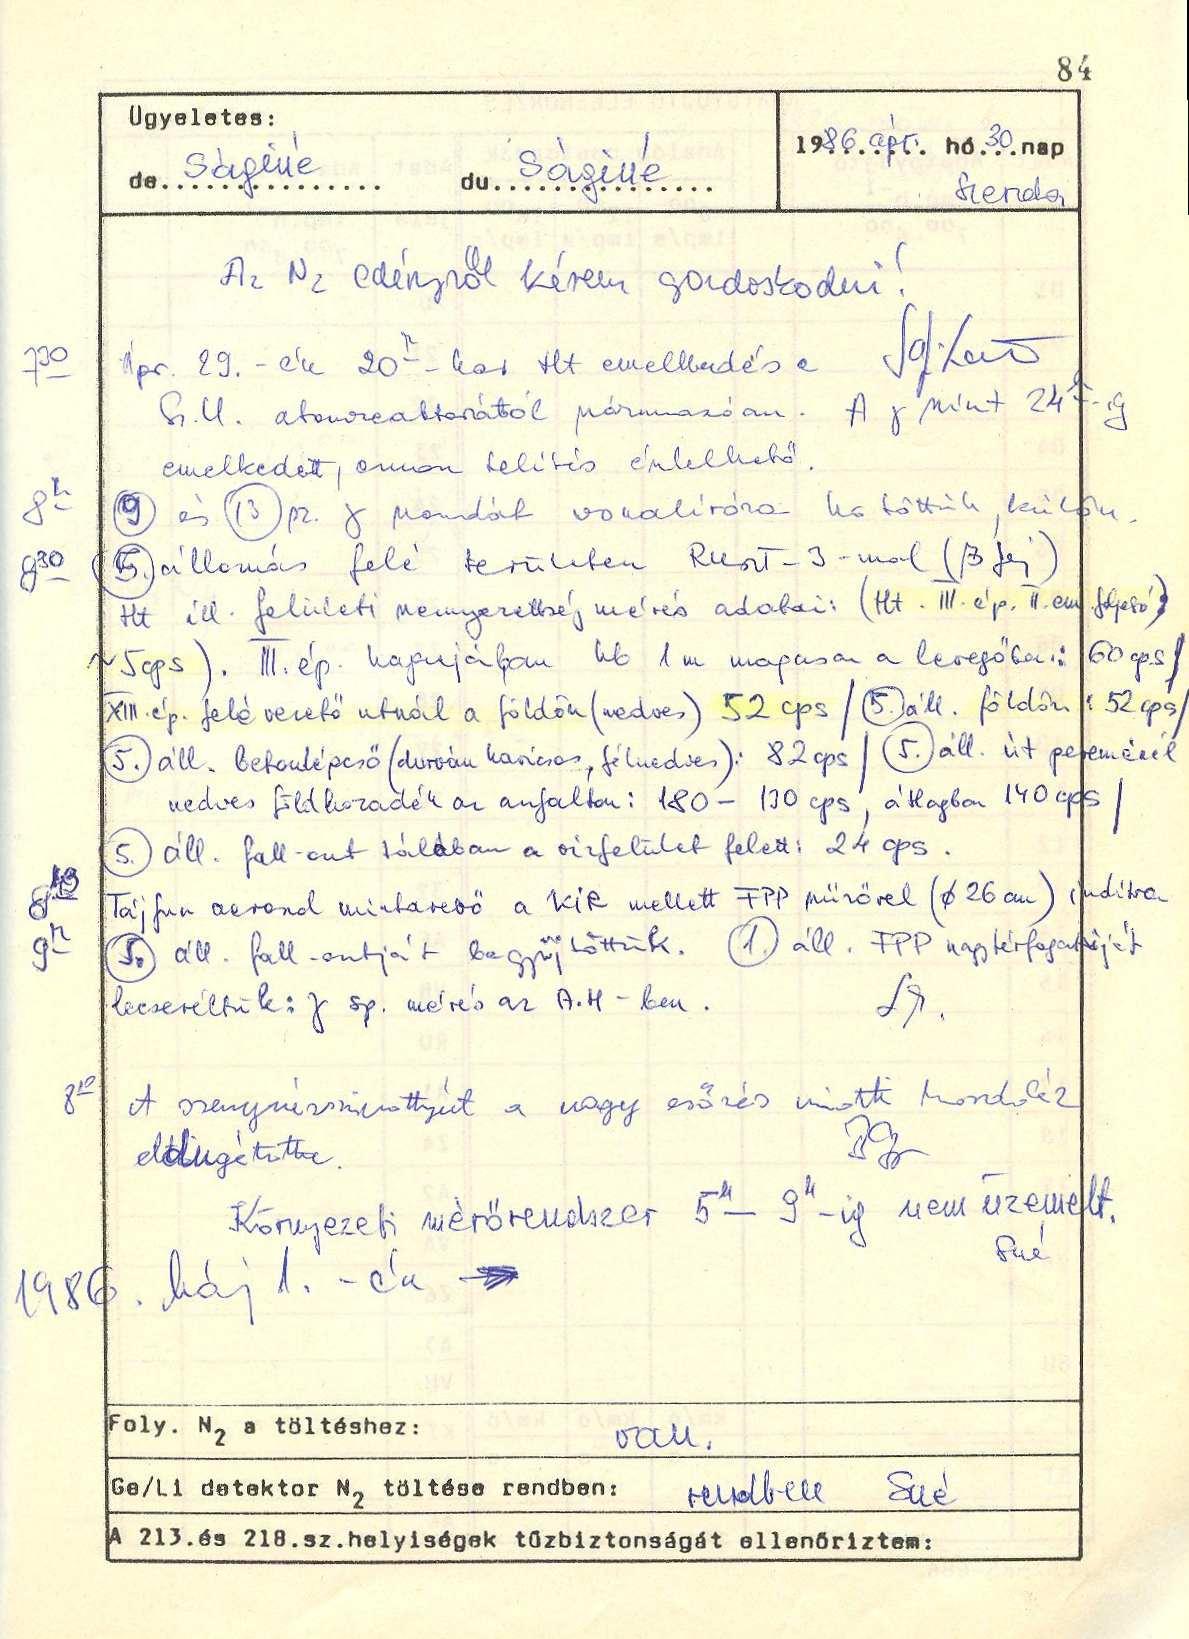 84
Ügyeletes:
de. Ságiné du. Ságiné
1986. ápr. hó 30. nap
Szerda
Az N2 edényről kérem gondoskodni!
7 30 Ápr. 29.-én 20 h-kor Ht emelkedés a
Sz.U. atomreaktorától származóan. A γ szint 24 h-ig
emelkedett, onnan telítés észlelhető.
8 h 9 és 13 γ szondát vonalíróra kötöttük, külön.
8 30 (5.) állomás felé területen RUST-3-mal (β fej)
Ht ill. felületi szennyezettség mérés adatai: (Ht. III. ép. II. em. folyosó
~5cps). III. ép. kapujában kb 1 m magasan a levegőben: 60 cps/
XIII. ép. felé vezető útnál a földön (nedves) 52 cps / 5. áll. földön: 52 cps/
5. áll. betonlépcső (durván kavicsos, félnedves): 82 cps / 5. áll. út pereménél
nedves földhozadék az aszfalton: 180 - 130 cps, átlagban 140 cps /
5. áll. fall-out tálában a vízfelület felett: 24 cps.
Tájfun aerosol mintavevő a KIR mellett FPP szűrővel (ø 26 cm) indítva
9 h 5. áll. fall-outját begyűjtöttük. 1. áll. FPP nagytérfogatúját
lecseréltük: γ sp. mérés az A.H-ben.
8 10 A szennyvízszivattyút a nagy esőzés miatt
Környezeti mérőrendszer 5 h - 9 h-ig nem üzemelt.
Sné
1986. Máj 1. -én →
Foly. N2 a töltéshez: van.
Ge/Li detektor N2 töltése rendben: rendben Sné
A 213.és 218.sz.helyiségek tűzbiztonságát ellenőriztem: